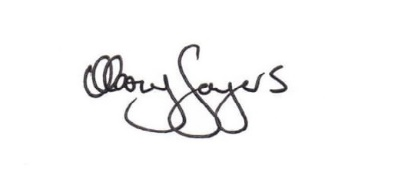 Mary Sayers